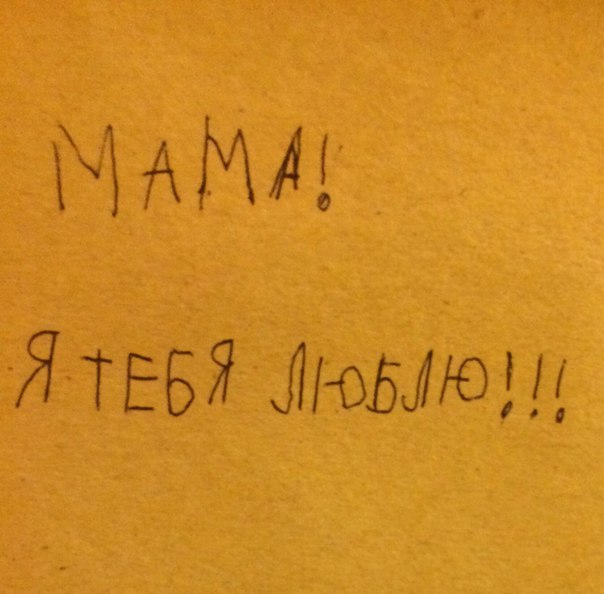 МАМА!
Я ТЕБЯ ЛЮБЛЮ!!!